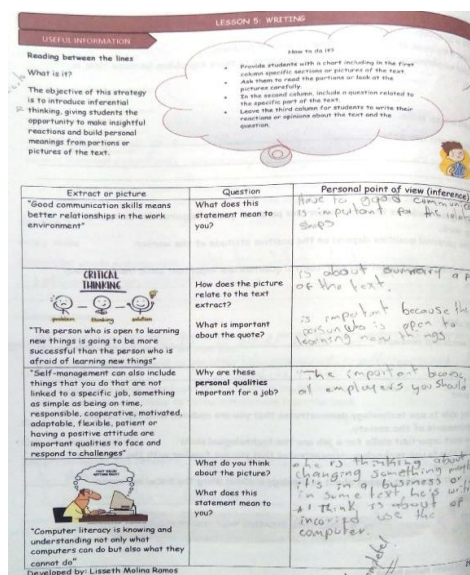 LESSON 5: WRITING
USEFUL INFORMATION
Reading between the lines
What is it?
The objective of this strategy
is to introduce inferential
thinking, giving students the
opportunity to make insightful
reactions and build personal
meanings from portions or
pictures of the text.
How to do it?
• Provide students with a chart including in the first
column specific sections or pictures of the text.
• Ask them to read the portions or look at the
pictures carefully.
• In the second column, include a question related to
the specific part of the text.
• Leave the third column for students to write their
reactions or opinions about the text and the
question.
Extract or picture
Question
Personal point of view (inference)
"Good communication skills means
better relationships in the work
environment"
What does this
statement mean to
you?
Have to good
is important for the
ships
CRITICAL
THINKING
problem thinking solution
"The person who is open to learning
new things is going to be more
successful than the person who is
afraid of learning new things"
How does the picture
relate to the text
extract?
What is important
about the quote?
is about a
of the text.
is important because the
person who is open to
learning new things
"Self-management can also include
things you do that are not
linked to a specific job, something
as simple as being on time,
responsible, cooperative, motivated,
adaptable, flexible, patient or
having a positive attitude are
important qualities to face and
respond to challenges"
Why are these
personal qualities
important for a job?
The important
of employers you should
"Computer literacy is knowing and
understanding not only what
computers can do but also what they
cannot do"
What do you think
about the picture?
What does this
statement mean to
you?
he is thinking about
changing something
it's in a business or
in some text, he is
I think is about of
use the
computer.
Developed by: Lisseth Molina Ramos